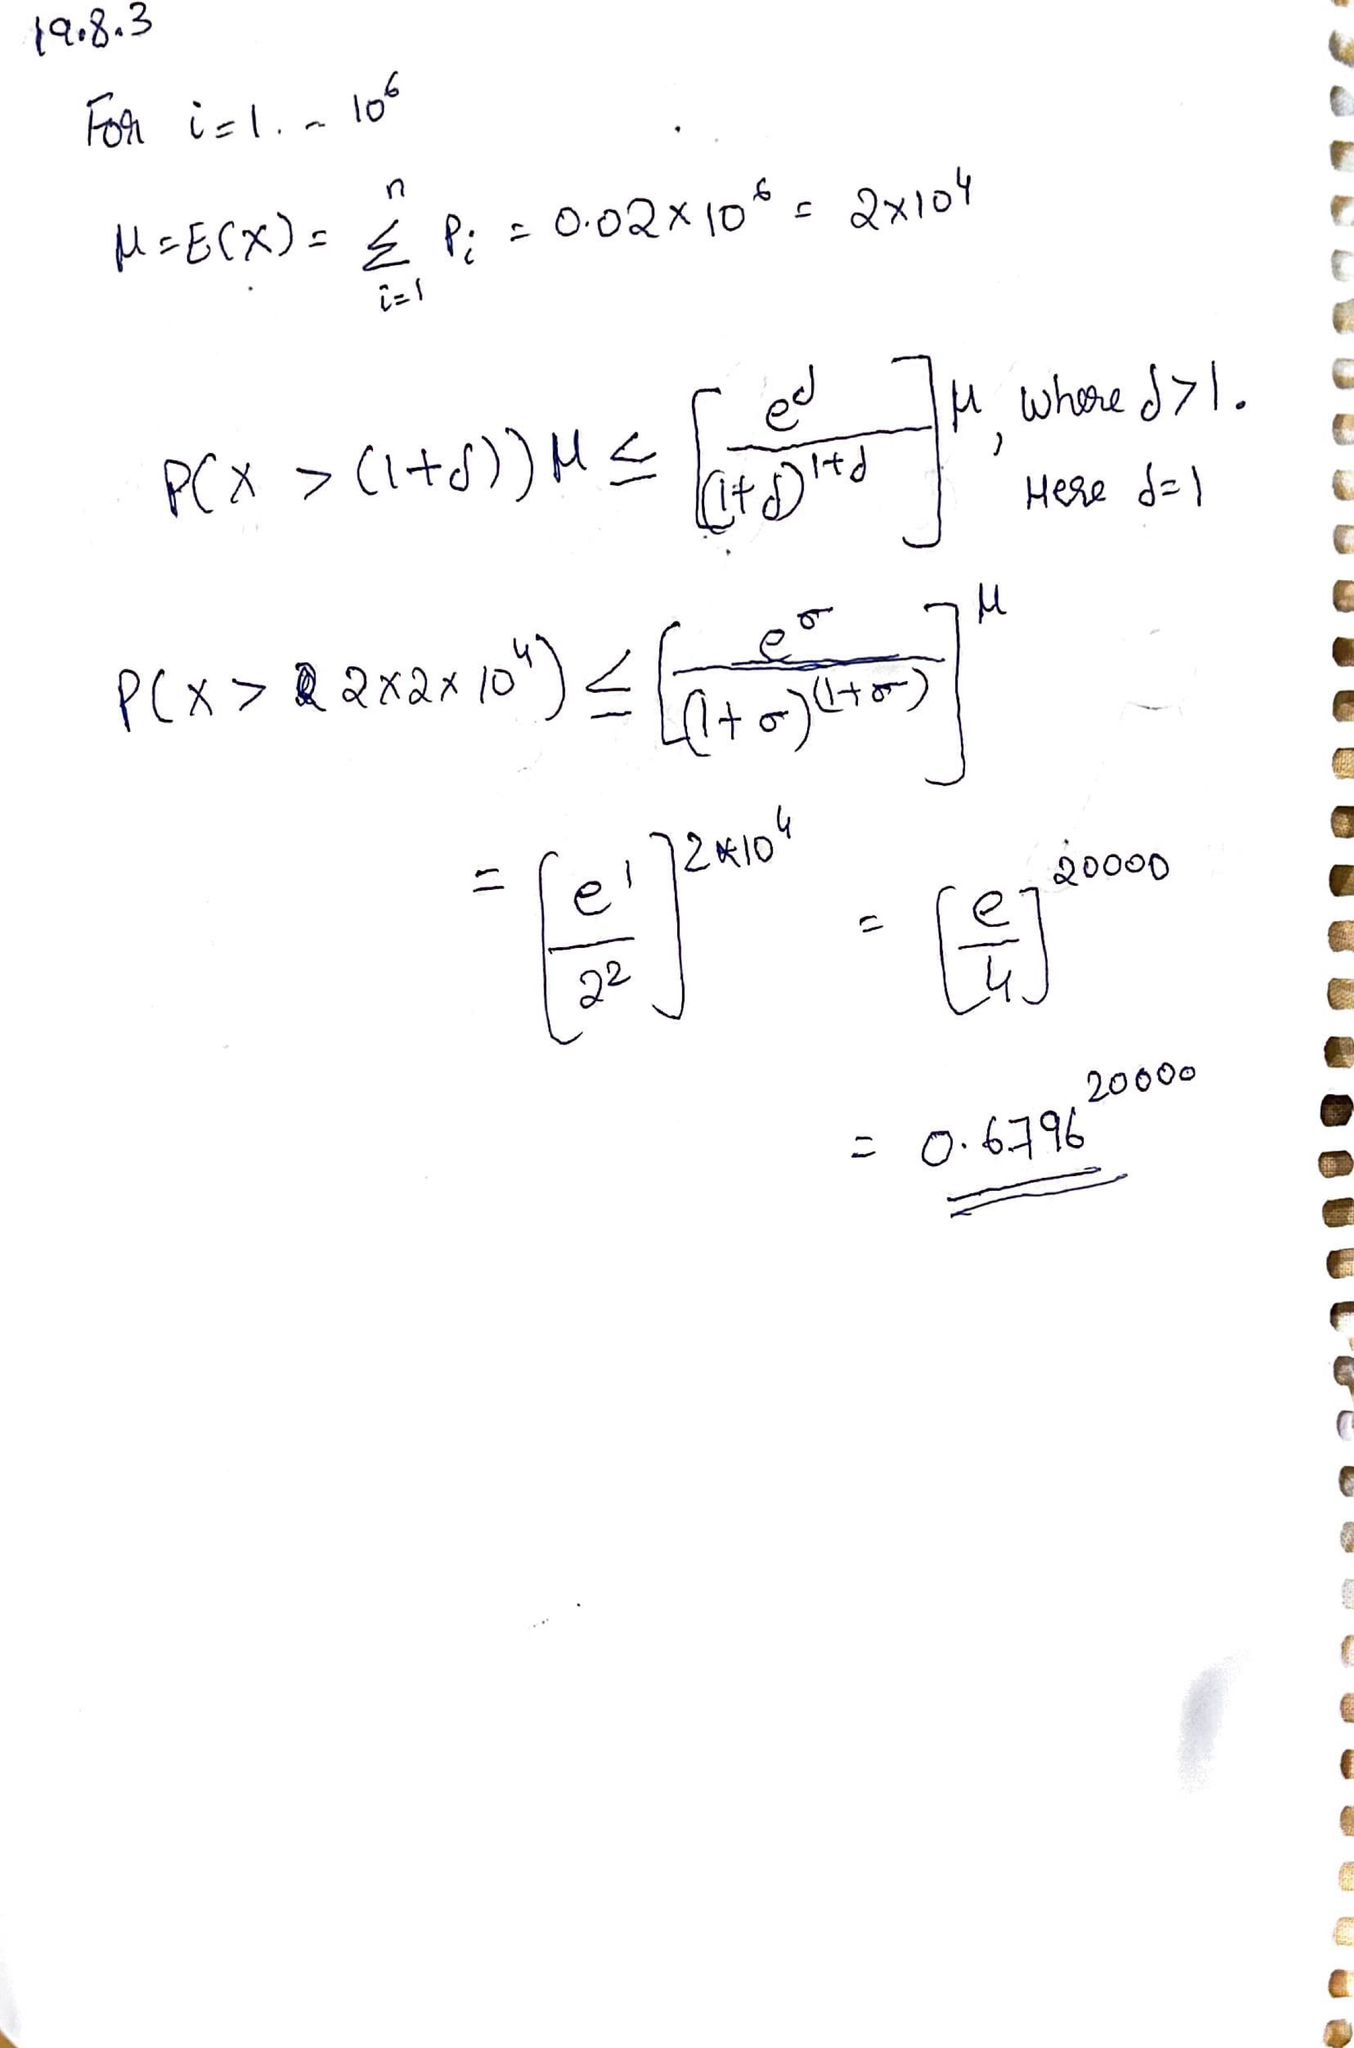 19.8.3
For i=1.. 10⁶
μ=E(X)= n Σ i=1 Pi = 0.02×10⁶ = 2×10⁴
P(X > (1+δ))μ ≤ [e^δ / (1+δ)^1+δ]^μ, where δ>1.
Here δ=1
P(X > 2×2×10⁴) ≤ [e^σ / (1+σ)^(1+σ)]^μ
= [e¹ / 2²]^2×10⁴ = [e / 4]^20000
= 0.6796^20000